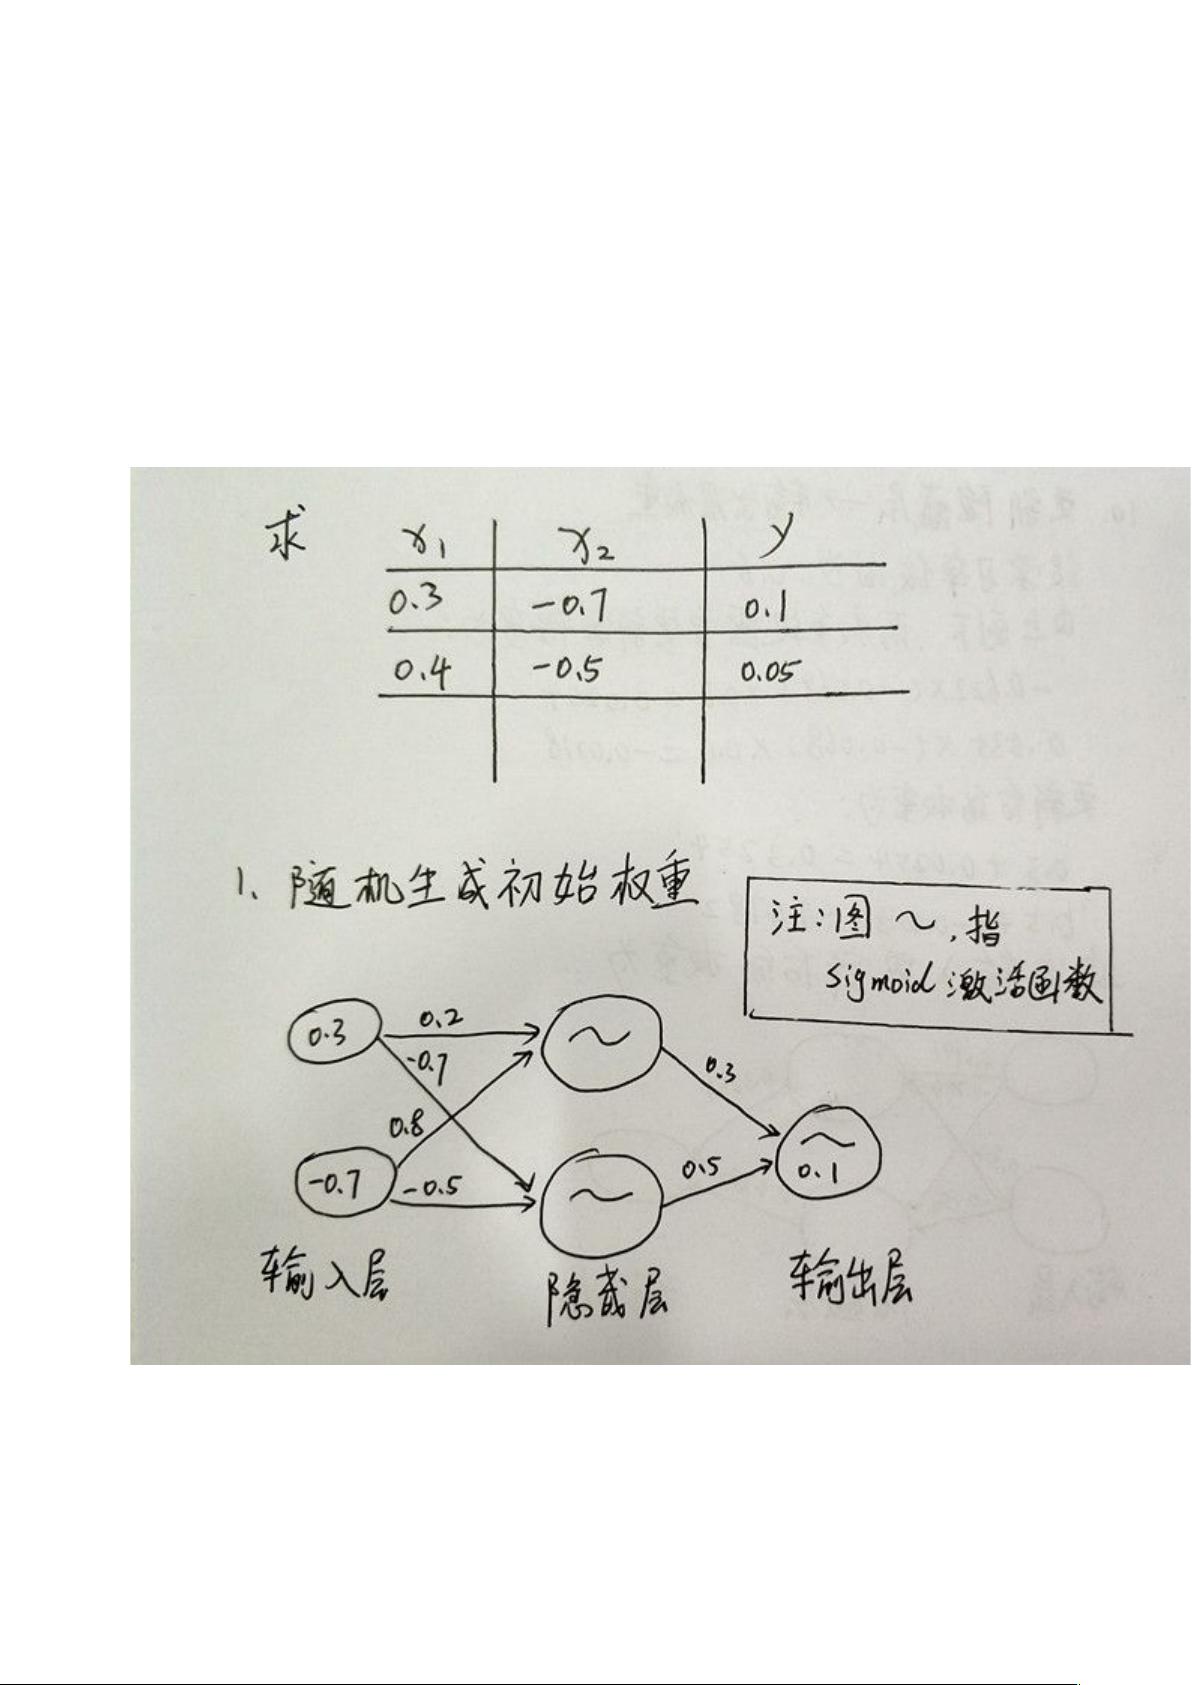 求
x₁ x₂ y
0.3 -0.7 0.1
0.4 -0.5 0.05
1、随机生成初始权重
注:图 ～,指
sigmoid 激活函数
0.3 0.2 ～
-0.7 0.3
0.8 ～
-0.7 -0.5 ～ 0.5 0.1
输入层 隐藏层 输出层